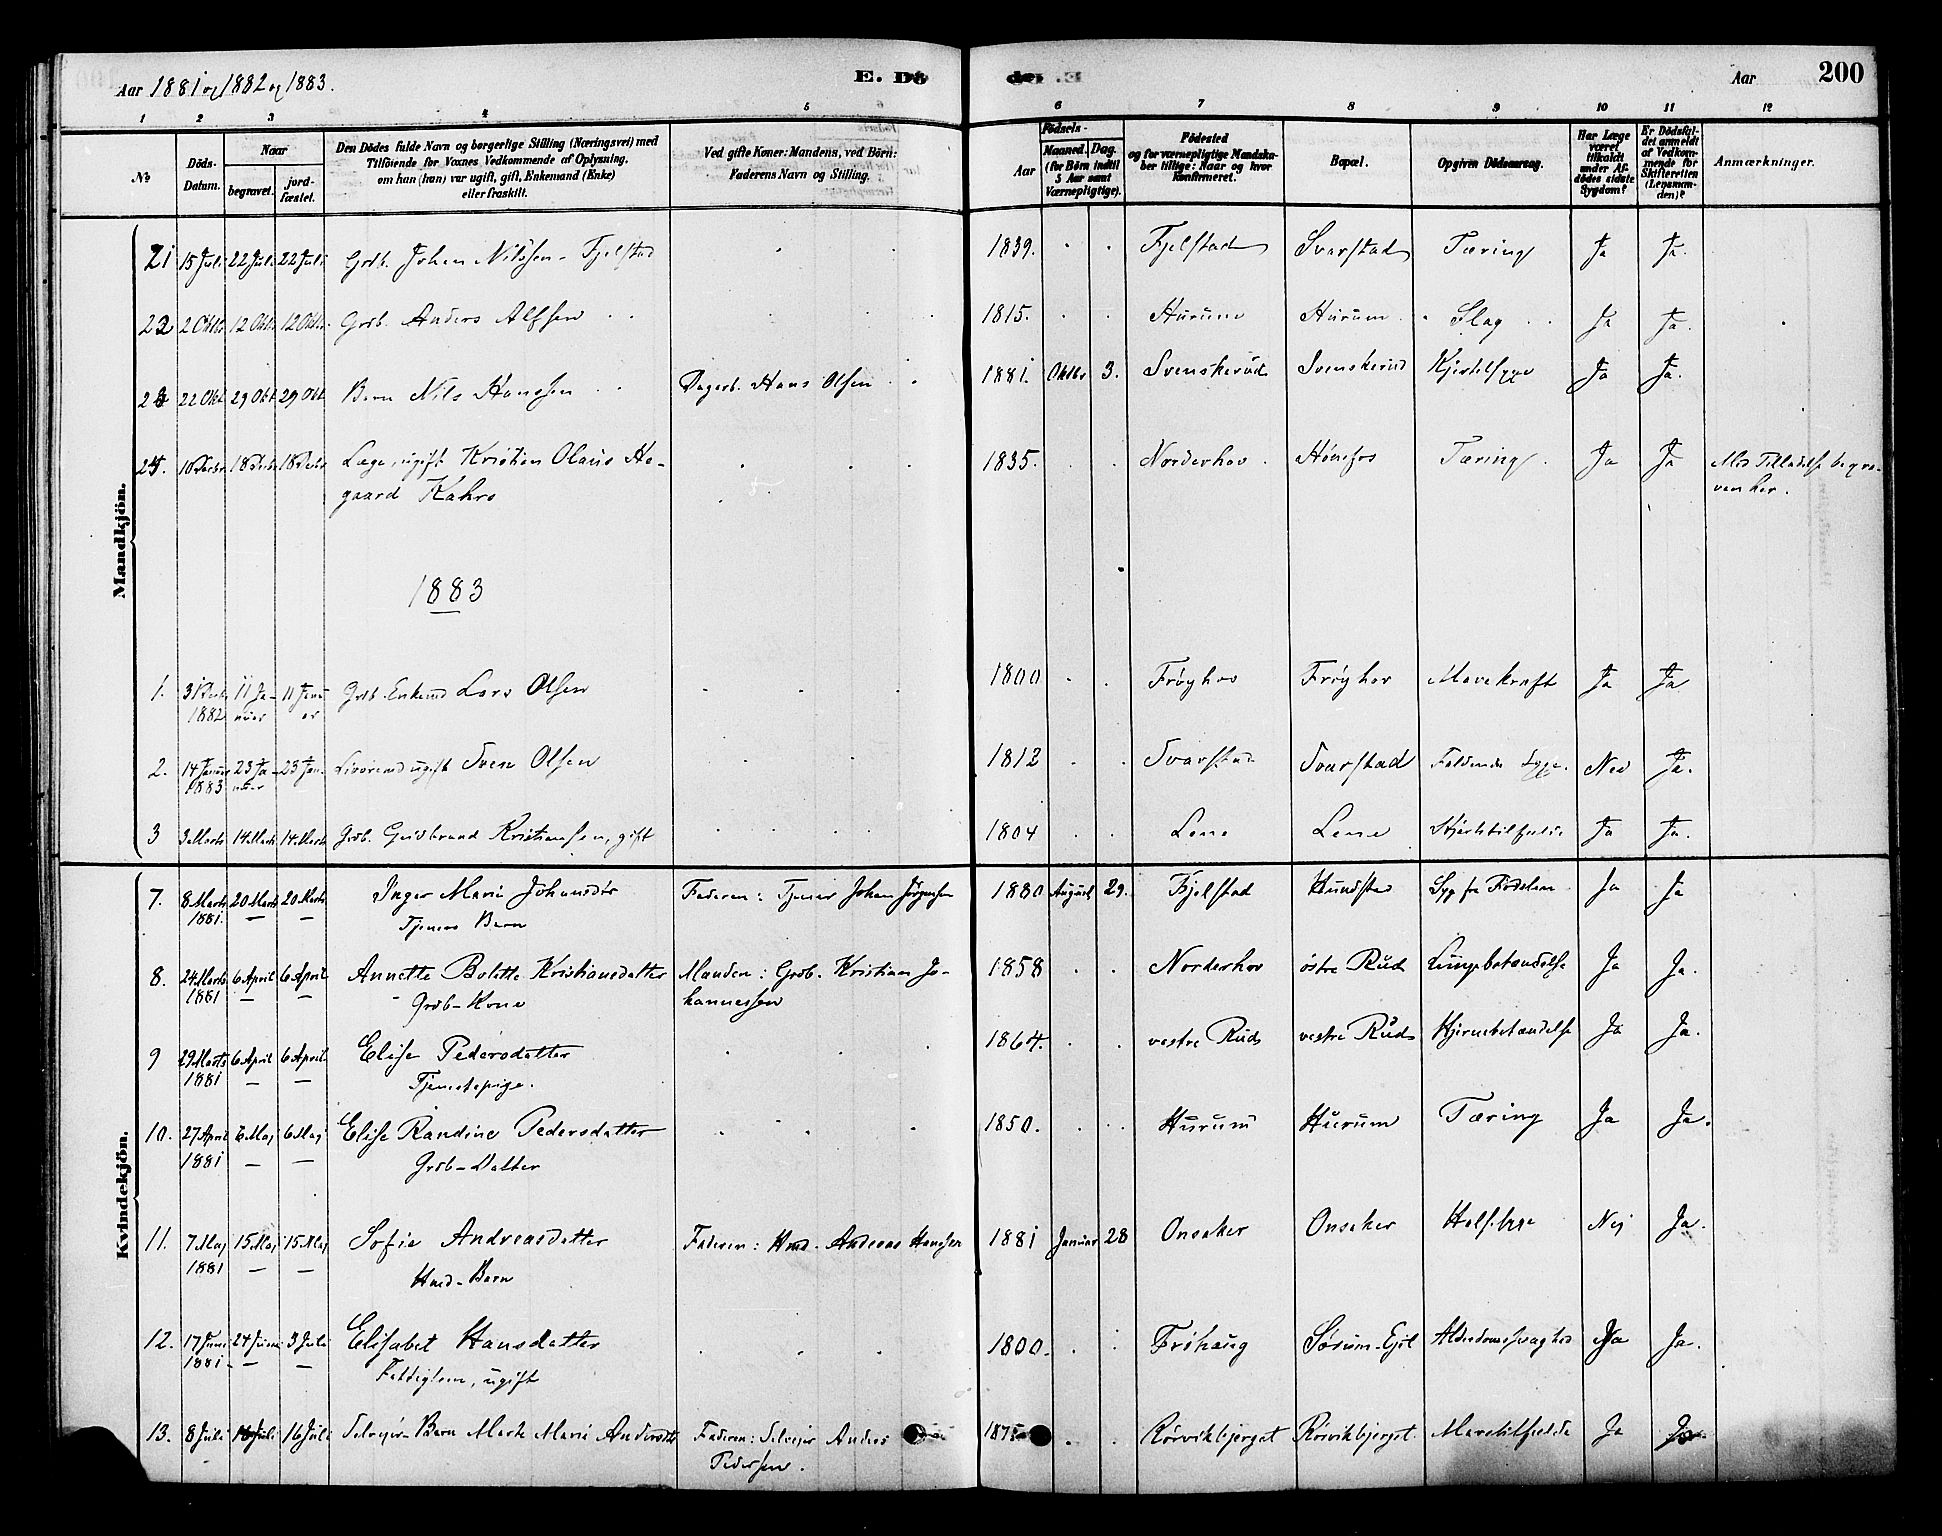 Aar 1881 og 1882 og 1883.
E. Dö
de.
Aar
200
1 2 3 4 5 6 7 8 9 10 11 12
No
Döds-Datum.
Naar
begravet.
jord-fæstet.
Den Dödes fulde Navn og borgerlige Stilling (Næringsvei) med
Tilföiende for Voxnes Vedkommende af Oplysning,
om han (hun) var ugift, gift, Enkemand (Enke)
eller fraskilt.
Ved gifte Koner: Mandens, ved Börn:
Faderens Navn og Stilling.
Födsels-
Aar
Maaned. Dag.
(for Börn indtil
5 Aar samt
Værnepligtige).
Födested
og for værnepligtige Mandska-
ber tillige: Naar og hvor
konfirmeret.
Bopæl.
Opgiven Dödsaarsag.
Har Læge
været
tilkaldt
under Af-
dödes sidste
Sygdom?
Er Dödsfal-
det anmeldt
af Vedkom-
mende for
Skifteretten
(Lensman-
den)?
Anmærkninger.
Mandkjön.
21 15 Juli 22 Juli 22 Juli Grdb. Johan Nilssen Fjelstad 1839. Fjelstad Svarstad Tæring Ja Ja.
22 2 Oktbr 12 Oktbr 12 Oktbr. Grdb. Anders Alfsen 1815. Hurum Hurum Slag Ja Ja.
23 22 Okt 29 Okt 29 Okt Barn Nils Hanssen Dagarb. Hans Olsen 1881. Oktbr 3. Svenskerud Svenskerud Kjertelsyge Ja Ja.
24. 10 Decbr 18 Decbr 18 Decbr Læge, ugift Kristian Olaus He-
gaard Kahrs 1835. Norderhov Hønefos Tæring Ja Ja Med Tilladelse begra-
ven her.
1883
1. 31 Decbr
1882 11 Ja-
nuar 11 Janu
ar Grdb. Enkemd Lars Olsen 1800 Frøyhov Frøyhov Mavekræft Ja Ja
2. 14 Januar
1883 23 Ja-
nuar 23 Jan. ugift Sven Olsen 1812 Svarstad Svarstad Faldende Syge. Nei Ja.
3 3 Marts 14 Marts 14 Marts Grdb. Gudbrand Kristiansen, gift 1804 Lene Lene Ja Ja.
Kvindekjön.
7. 8 Marts
1881. 20 Marts
— 20 Marts
— Inger Marie Johansdtr
Tjeners Barn Faderen: Tjener Johan Jørgensen 1880 August 29. Fjelstad Hundstad Syg fra Fødselen Ja Ja
8. 24 Marts
1881 6 April
— 6 April
— Annette Bolette Kristiansdatter
Grdb-Kone Manden: Grdb. Kristian Jo-
hannessen 1858 Norderhov østre Rud Lungebetændelse Ja Ja.
9 29 Marts
1881 6 April
— 6 April
— Elise Pedersdatter
Tjenestepige. 1864. vestre Rud vestre Rud Hjernebetændelse Ja Ja.
10. 27 April
1881 6 Maj
— 6 Maj
— Elise Randine Pedersdatter
Grdb-Datter 1850. Hurum Hurum Tæring Ja Ja.
11. 7 Maj
1881 15 Maj
— 15 Maj
— Sofie Andreasdatter
Hmd-Barn Faderen: Hmd. Andreas Hansen 1881 Januar 28 Onsaker Onsaker Halssyge Nej Ja.
12. 17 Juni
1881. 24 Juni
— 3 Juli
— Elisabet Hansdatter
Fattiglem, ugift 1800. Frøhaug Sørum-Ejet Alderdomssvaghed Ja Ja.
13. 8 Juli 16 Juli 16 Juli Selvejer-Barn Marte Marie Andersdtr Faderen: Selvejer Anders
Pedersen. Rørvikbjerget Rørvikbjerget. Ja Ja.